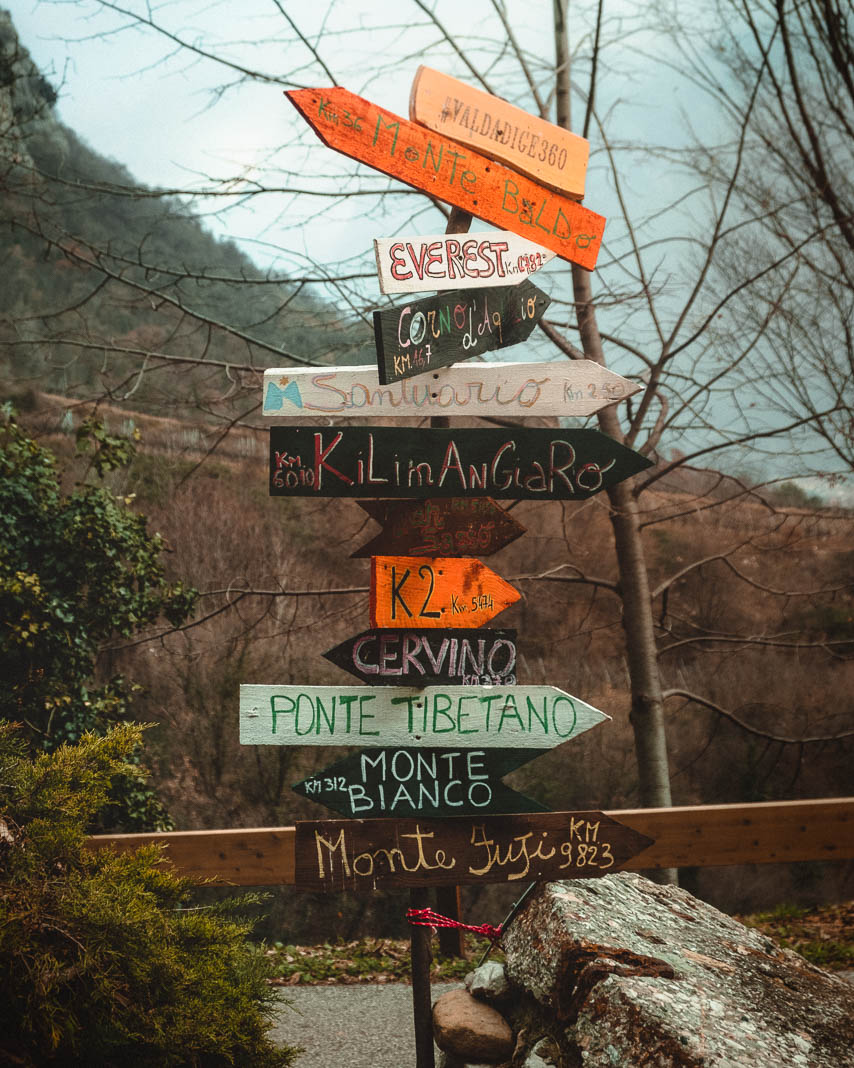 #VALDADIGE360
Km 36 MoNTe BaLDo
EVEREST Km
CORNO
d'Aquilio
KM. 16,7
Santuario Km 2.50
KM. 6010 KiLimANGiaRo
K2 Km. 5474
CERVINO
KM 378
PONTE TIBETANO
KM 312 MONTE
BIANCO
Monte Fuji KM
9823